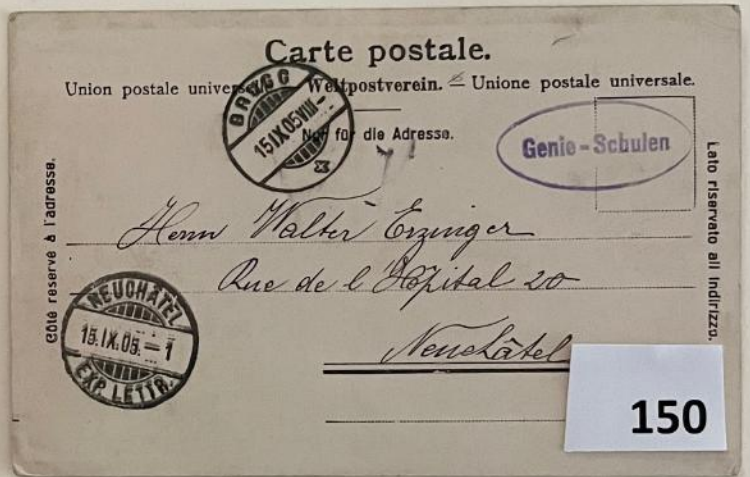 Carte postale.
Union postale universelle. — Weltpostverein. — Unione postale universale.
Nur für die Adresse.
BRUGG
15.IX.05.VIII-
X
Genie-Schulen
Côté réservé à l'adresse.
Lato riservato all indirizzo.
Herrn Walter Erzinger
Rue de l'Hôpital 20
Neuchâtel
NEUCHÂTEL
15.IX.05.-1
EXP. LETTR.
150